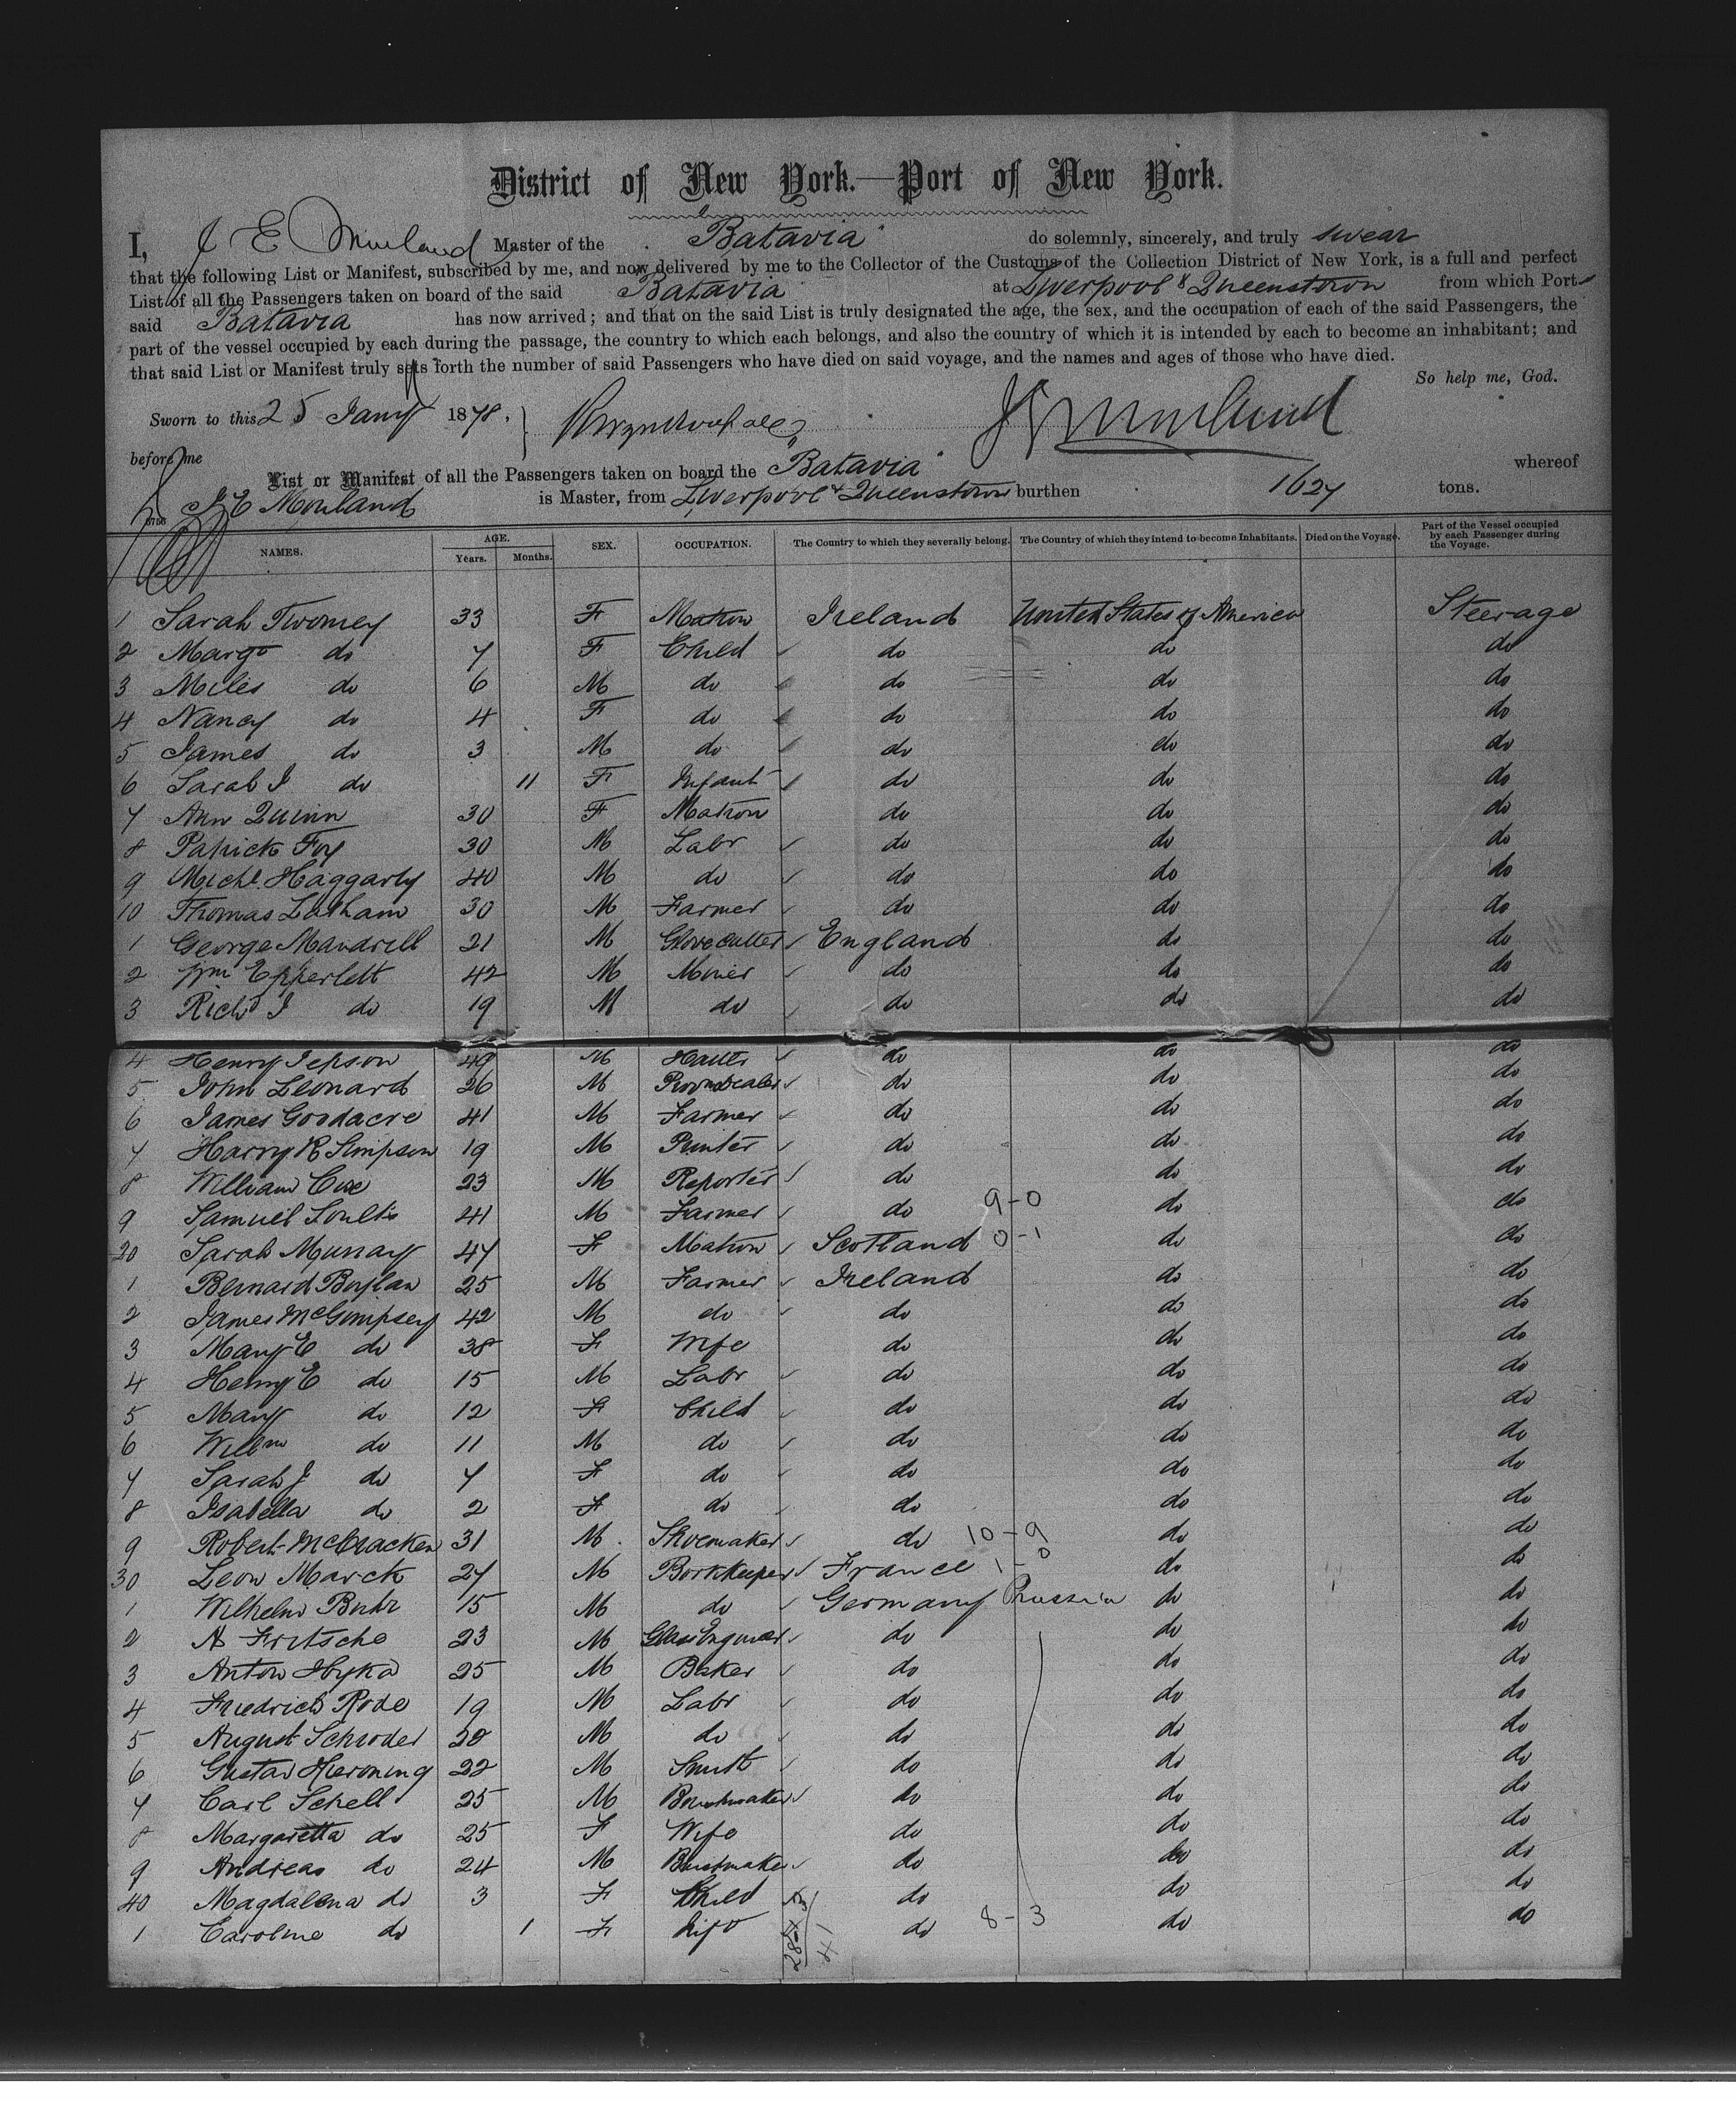 District of New York.—Port of New York.
I, J E Mouland Master of the "Batavia" do solemnly, sincerely, and truly swear
that the following List or Manifest, subscribed by me, and now delivered by me to the Collector of the Customs of the Collection District of New York, is a full and perfect
List of all the Passengers taken on board of the said Batavia at Liverpool & Queenstown from which Ports
said Batavia has now arrived; and that on the said List is truly designated the age, the sex, and the occupation of each of the said Passengers, the
part of the vessel occupied by each during the passage, the country to which each belongs, and also the country of which it is intended by each to become an inhabitant; and
that said List or Manifest truly sets forth the number of said Passengers who have died on said voyage, and the names and ages of those who have died.
So help me, God.
Sworn to this 25 Jany 1878.
before me
List or Manifest of all the Passengers taken on board the "Batavia" whereof
J E Mouland is Master, from Liverpool & Queenstown burthen 1627 tons.
NAMES. AGE. Years. Months. SEX. OCCUPATION. The Country to which they severally belong. The Country of which they intend to become Inhabitants. Died on the Voyage. Part of the Vessel occupied by each Passenger during the Voyage.
1 Sarah Twomey 33 F Matron Ireland United States of America Steerage
2 Margt do 7 F Child do do do
3 Miles do 6 M do do do do
4 Nancy do 4 F do do do do
5 James do 3 M do do do do
6 Sarah J do 11 F Infant do do do
7 Ann Quinn 30 F Matron do do do
8 Patrick Foy 30 M Labr do do do
9 Michl. Haggarty 40 M do do do do
10 Thomas Latham 30 M Farmer do do do
1 George Mandrill 21 M Glove Cutter England do do
2 Wm Epperlett 42 M Miner do do do
3 Richd J do 19 M do do do do
4 Henry Jepson 49 M Hatter do do do
5 John Leonard 26 M Provn Dealer do do do
6 James Goodacre 41 M Farmer do do do
7 Harry R Simpson 19 M Printer do do do
8 William Cox 23 M Reporter do do do
9 Samuel 41 M Farmer do 9-0 do do
20 Sarah Murray 47 F Matron Scotland 0-1 do do
1 Bernard Boylan 25 M Farmer Ireland do do
2 James McGimpsey 42 M do do do do
3 Mary E do 38 F Wife do do do
4 Henry E do 15 M Labr do do do
5 Mary do 12 F Child do do do
6 Willm do 11 M do do do do
7 Sarah J do 7 F do do do do
8 Isabella do 2 F do do do do
9 Robert McCracken 31 M Shoemaker do 10-9 do do
30 Leon Marck 27 M Bookkeeper France 1-0 do do
1 Wilhelm Buhr 15 M do Germany Prussia do do
2 A Fritsche 23 M do do do
3 Anton Hyka 25 M Baker do do do
4 Friedrich Rode 19 M Labr do do do
5 August Schroder 28 M do do do do
6 Gustav Hieroning 22 M Smith do do do
7 Carl Schell 25 M do do do
8 Margaretta do 25 F Wife do do do
9 Andreas do 24 M do do do
40 Magdalena do 3 F Child do do do
1 Caroline do 1 F Inft do 8-3 do do